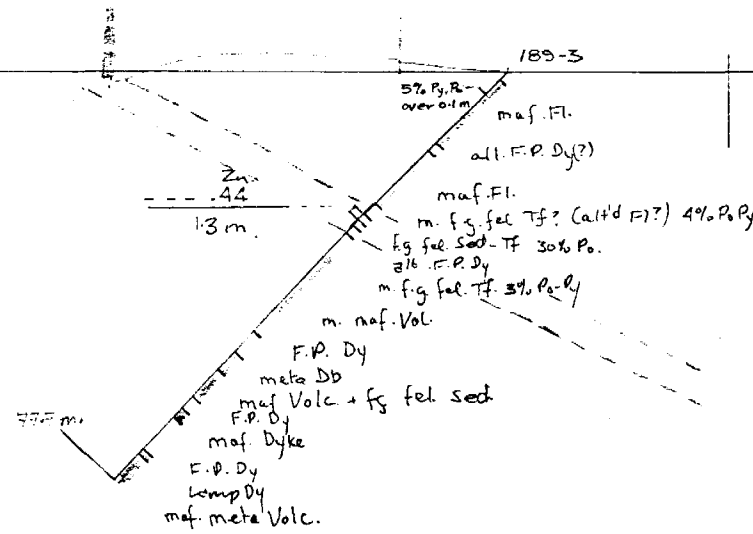 189-3
5% Py, Po -
over 0.1 m
maf. Fl.
alt. F.P. Dy(?)
Zn
.44
1.3 m.
maf. Fl.
m. f.g. fel Tf? (alt'd Fl?) 4% Po Py
f.g fel. Sed - Tf 30% Po.
alt. F.P. Dy
m. f.g fel. Tf. 3% Po-Py
m. maf. Vol.
F.P. Dy
meta Db
maf Volc. + fg fel. sed
F.P. Dy
maf. Dyke
F.P. Dy
Lamp Dy
maf. meta Volc.